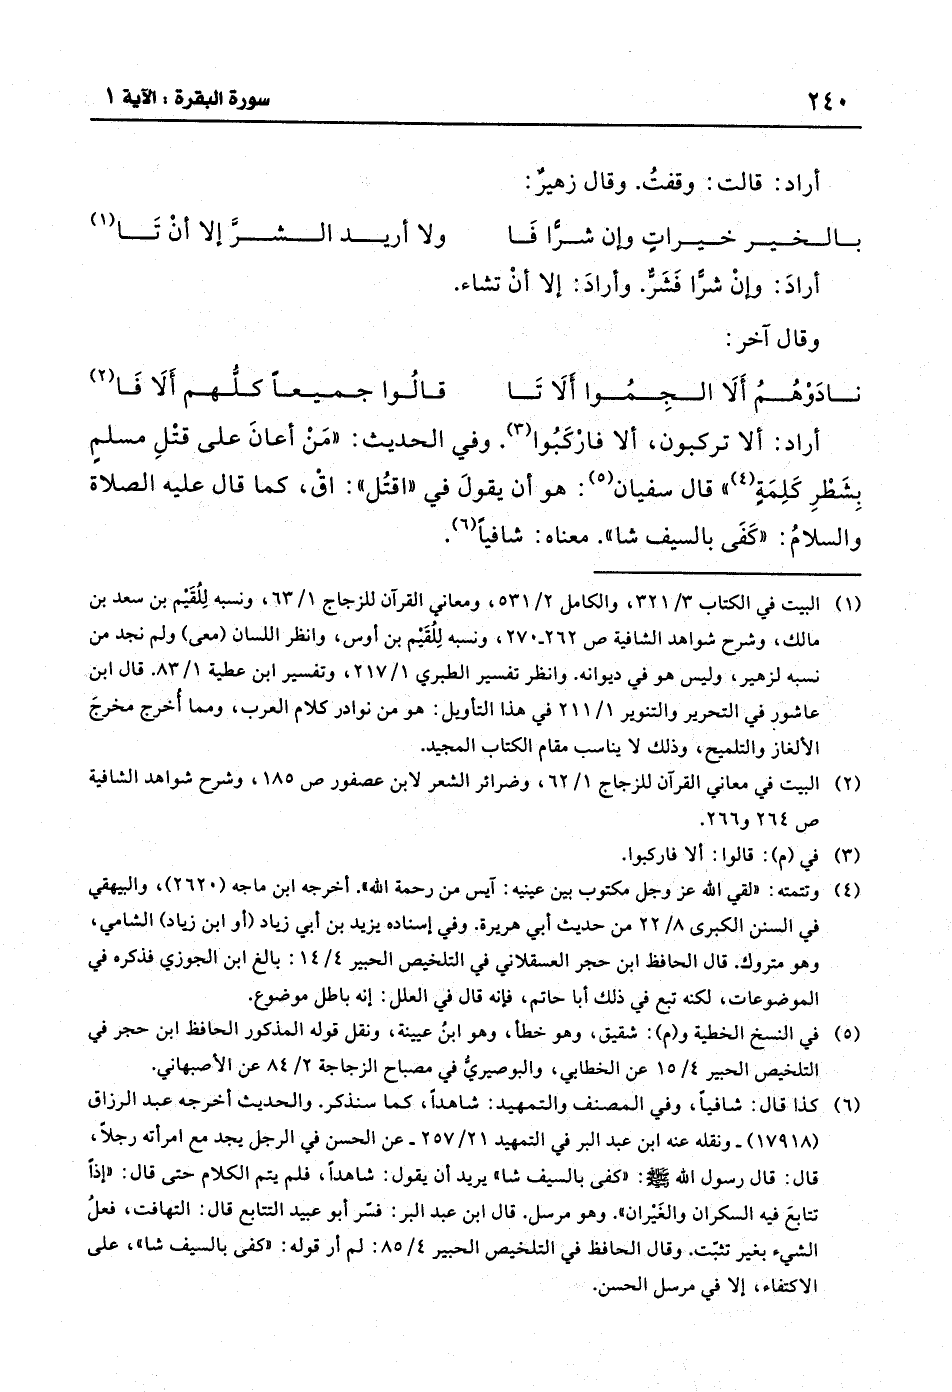 ٢٤٠ سورة البقرة : الآية ١
أراد: قالت: وقفتُ. وقال زهيرٌ:
بالـخـيـر خـيـراتٍ وإن شـرًّا فَـا ولا أريـد الـشـرَّ إلا أنْ تَـا(١)
أرادَ: وإنْ شرًّا فَشَرٌّ. وأرادَ: إلا أنْ تشاء.
وقال آخر:
نـادَوْهُـمُ أَلَا الـجِـمُـوا أَلَا تَـا قـالُـوا جـمـيـعـاً كـلُّـهـم أَلَا فَـا(٢)
أراد: ألا تركبون، ألا فارْكَبُوا(٣). وفي الحديث: «مَنْ أعانَ على قتْلِ مسلمٍ
بِشَطْرِ كَلِمَةٍ(٤)» قال سفيان(٥): هو أن يقولَ في «اقتُل»: اقْ، كما قال عليه الصلاة
والسلامُ: «كَفَى بالسيف شا». معناه: شافياً(٦).
(١) البيت في الكتاب ٣/ ٣٢١، والكامل ٢/ ٥٣١، ومعاني القرآن للزجاج ١/ ٦٣، ونسبه لِلُقَيْم بن سعد بن
مالك، وشرح شواهد الشافية ص ٢٦٢-٢٧٠، ونسبه لِلُقَيْم بن أوس، وانظر اللسان (معى) ولم نجد من
نسبه لزهير، وليس هو في ديوانه. وانظر تفسير الطبري ١/ ٢١٧، وتفسير ابن عطية ١/ ٨٣. قال ابن
عاشور في التحرير والتنوير ١/ ٢١١ في هذا التأويل: هو من نوادر كلام العرب، ومما أُخرج مخرجَ
الألغاز والتلميح، وذلك لا يناسب مقام الكتاب المجيد.
(٢) البيت في معاني القرآن للزجاج ١/ ٦٢، وضرائر الشعر لابن عصفور ص ١٨٥، وشرح شواهد الشافية
ص ٢٦٤ و٢٦٦.
(٣) في (م): قالوا: ألا فاركبوا.
(٤) وتتمته: «لقي الله عز وجل مكتوب بين عينيه: آيس من رحمة الله». أخرجه ابن ماجه (٢٦٢٠)، والبيهقي
في السنن الكبرى ٨/ ٢٢ من حديث أبي هريرة. وفي إسناده يزيد بن أبي زياد (أو ابن زياد) الشامي،
وهو متروك. قال الحافظ ابن حجر العسقلاني في التلخيص الحبير ٤/ ١٤: بالغ ابن الجوزي فذكره في
الموضوعات، لكنه تبع في ذلك أبا حاتم، فإنه قال في العلل: إنه باطل موضوع.
(٥) في النسخ الخطية و(م): شقيق، وهو خطأ، وهو ابنُ عيينة، ونقل قوله المذكور الحافظ ابن حجر في
التلخيص الحبير ٤/ ١٥ عن الخطابي، والبوصيريُّ في مصباح الزجاجة ٢/ ٨٤ عن الأصبهاني.
(٦) كذا قال: شافياً، وفي المصنف والتمهيد: شاهداً، كما سنذكر. والحديث أخرجه عبد الرزاق
(١٧٩١٨) - ونقله عنه ابن عبد البر في التمهيد ٢١/ ٢٥٧ - عن الحسن في الرجل يجد مع امرأته رجلاً،
قال: قال رسول الله ﷺ: «كفى بالسيف شا» يريد أن يقول: شاهداً، فلم يتم الكلام حتى قال: «إذاً
تتابعَ فيه السكران والغَيْران». وهو مرسل. قال ابن عبد البر: فسّر أبو عبيد التتابع قال: التهافت، فعلُ
الشيء بغير تثبّت. وقال الحافظ في التلخيص الحبير ٤/ ٨٥: لم أر قوله: «كفى بالسيف شا»، على
الاكتفاء، إلا في مرسل الحسن.